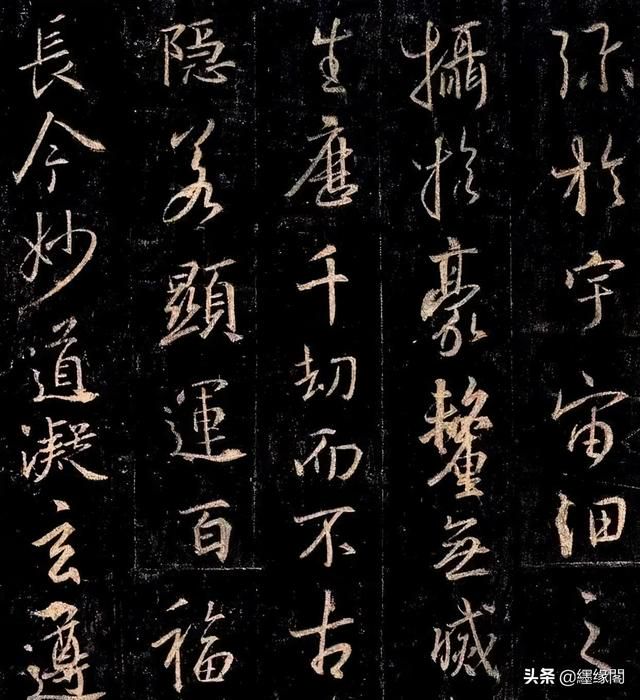 弥於宇宙細之
攝於豪釐無滅
生歷千劫而不古
隱若顯運百福
長今妙道凝玄遵
头条 @缘閣